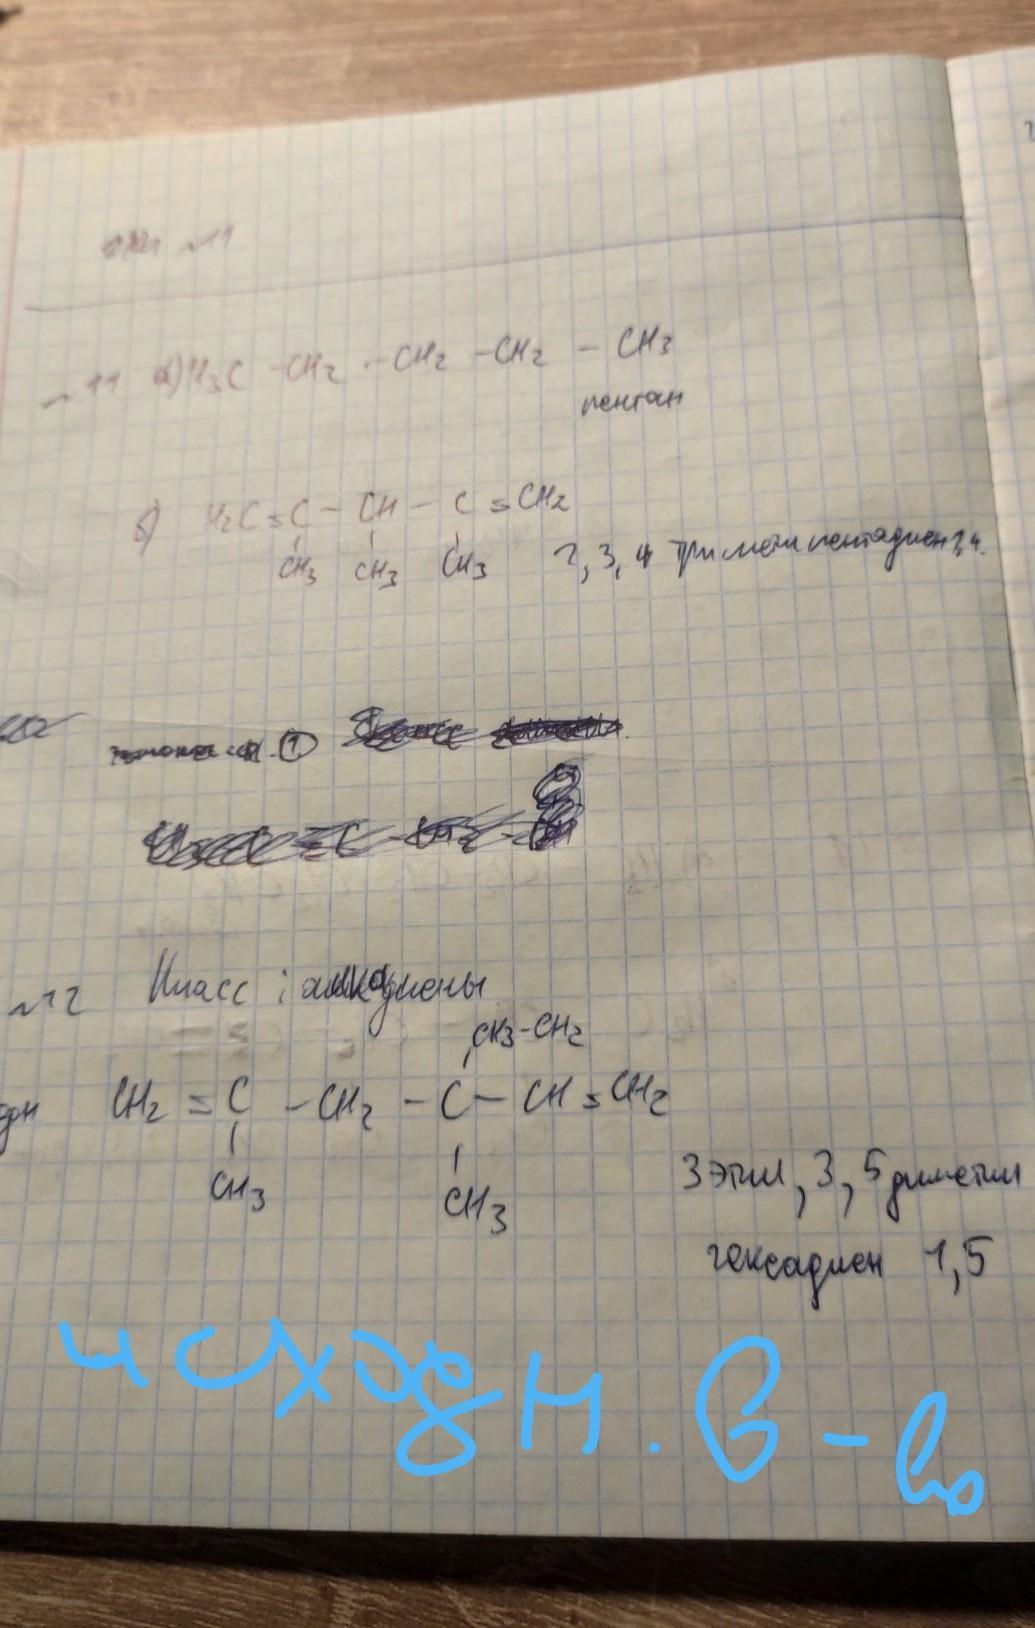 №11
№11 а) H₃C - CH₂ - CH₂ - CH₂ - CH₃
пентан
б) H₂C = C - CH - C = CH₂
CH₃ CH₃ CH₃ 2, 3, 4 триметилпентадиен
№12 Класс: алкадиены
CH3-CH₂
CH₂ = C - CH₂ - C - CH = CH₂
CH₃ CH₃
3 этил, 3, 5 диметил
гексадиен 1,5
исходн. в-во